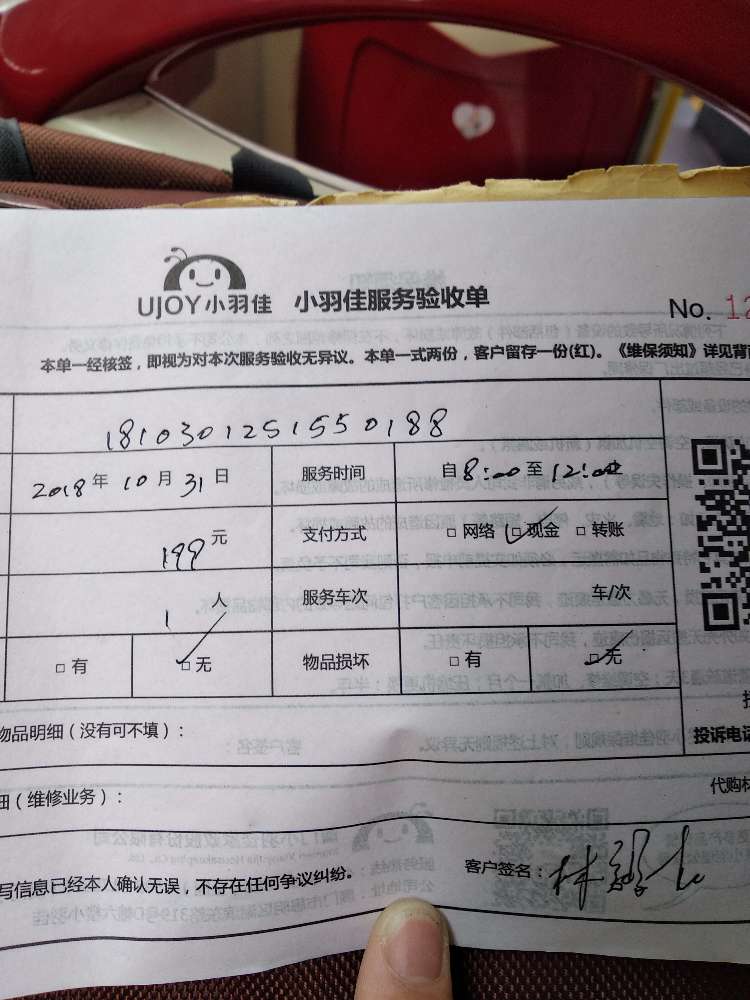 UJOY小羽佳 小羽佳服务验收单
No. 12
本单一经核签，即视为对本次服务验收无异议。本单一式两份，客户留存一份(红)。《维保须知》详见背面
1810301251550188
2018年10月31日 服务时间 自8:00至12:00
199元 支付方式 □网络 □现金 □转账
1人 服务车次 车/次
□有 □无 物品损坏 □有 □无
物品明细（没有可不填）：
投诉电话
细（维修业务）：
代购材
写信息已经本人确认无误，不存在任何争议纠纷。
客户签名：林